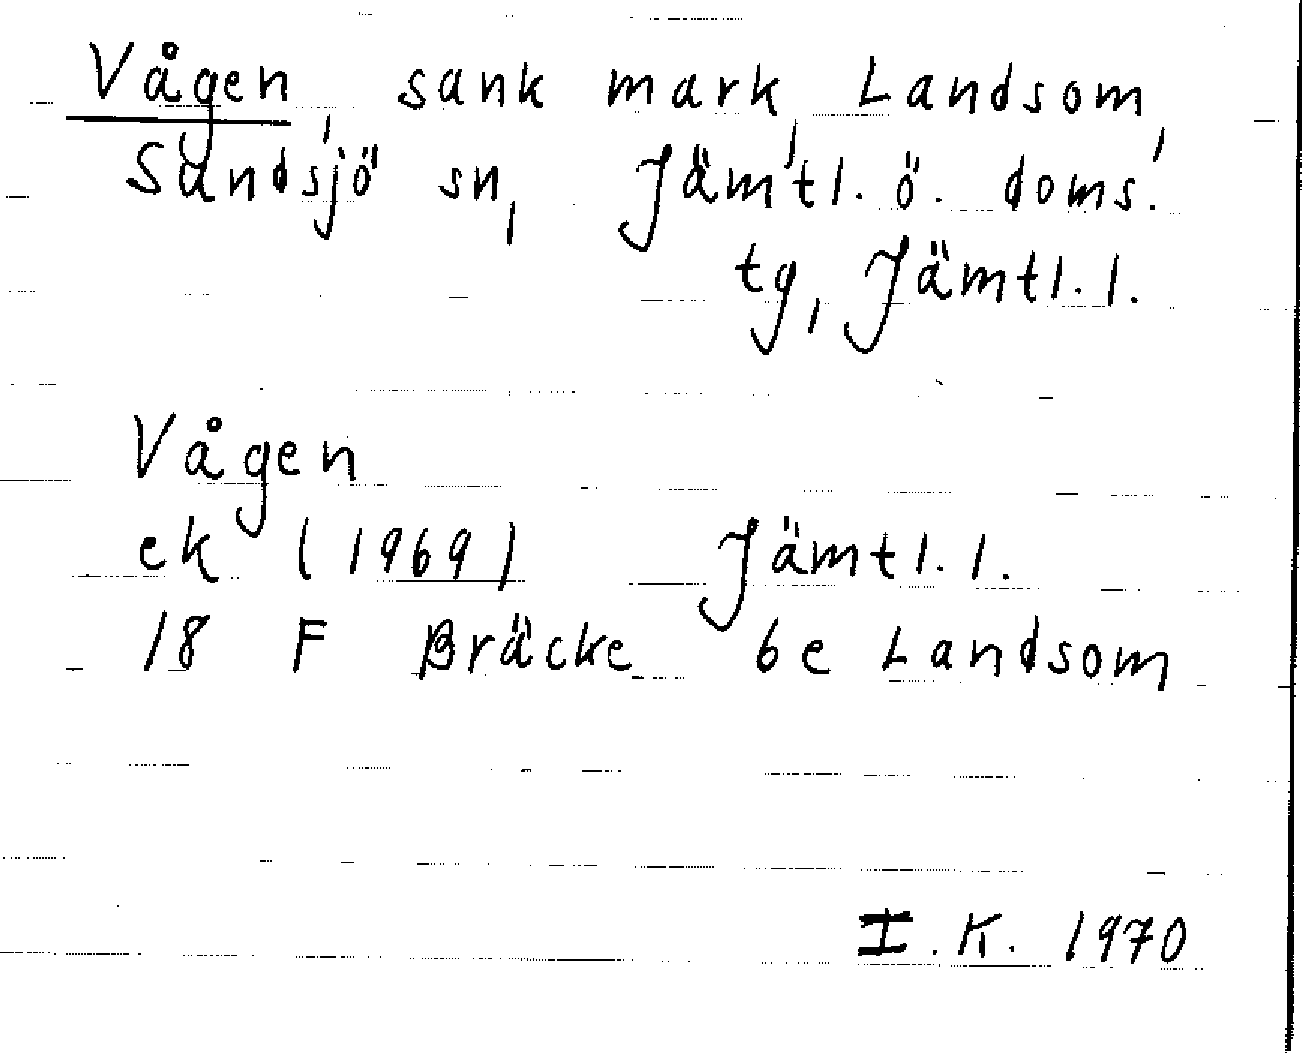 Vågen, sank mark, Landsom,
Sundsjö sn, Jämtl. ö. doms.
tg, Jämtl. l.
Vågen
ek (1969) Jämtl. l.
18 F Bräcke 6e Landsom
I. K. 1970